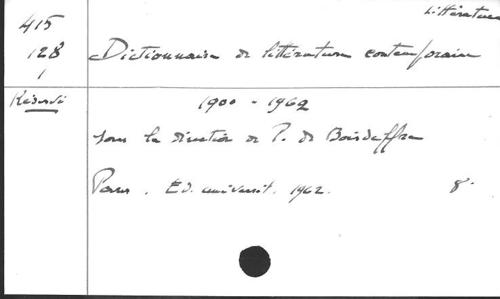 Littérature
415
128
1
Dictionnaire de littérature contemporaine
Réservé
1900 - 1962
sous la direction de P. de Boisdeffre
Paris. Ed. universit. 1962. 8°